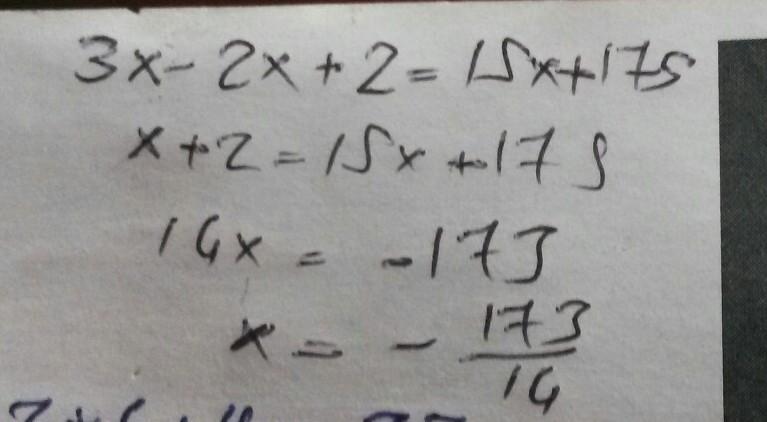 3x - 2x + 2 = 15x + 175
x + 2 = 15x + 175
14x = -173
x = - 173/14